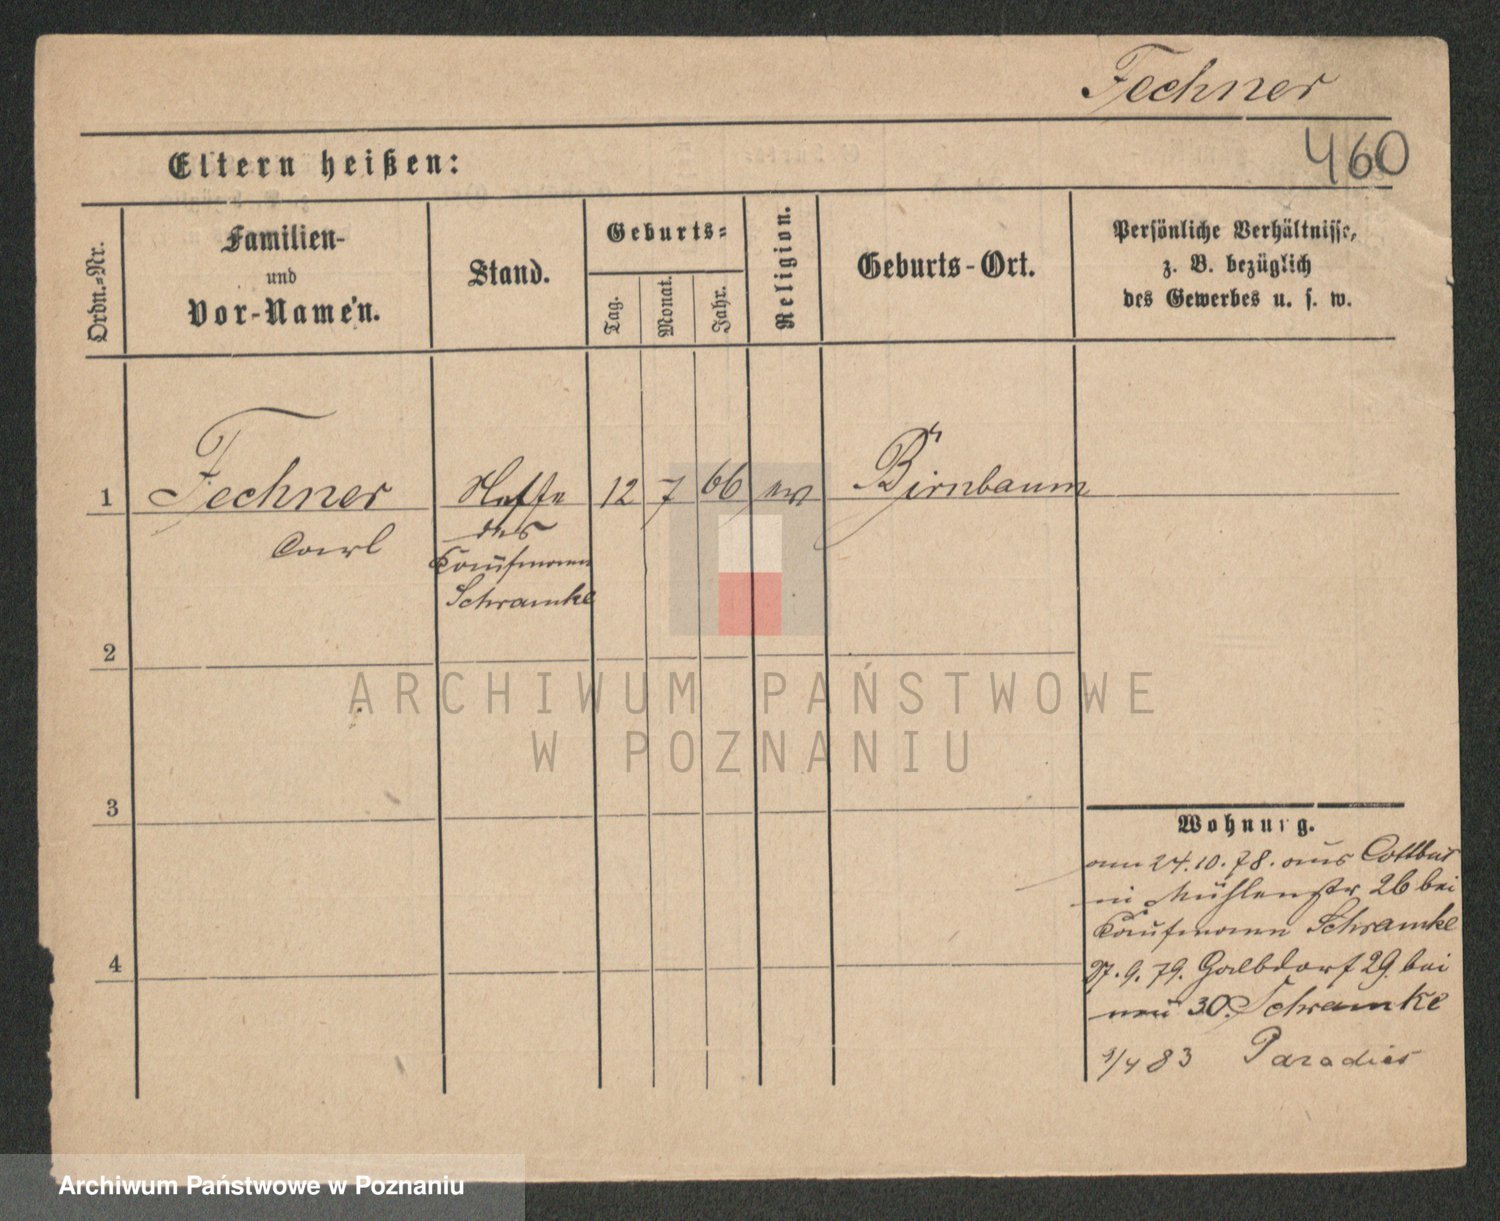 Fechner
460
Eltern heißen:
Ordn.-Nr.
Familien-
und
Vor-Namen.
Stand.
Geburts-
Tag.
Monat.
Jahr.
Religion.
Geburts-Ort.
Persönliche Verhältnisse,
z. B. bezüglich
des Gewerbes u. s. w.
1 Fechner Neffe 12 7 66 ev Birnbaum
Carl
des
Kaufmann
Schramke
2
3
4
Wohnung.
am 24.10.78. aus Cottbus
in Mühlenstr 26 bei
Kaufmann Schramke
27.9.79. Halbdorf 29. bei
neu 30. Schramke
1/4 83 Paradies
ARCHIWUM PAŃSTWOWE
W POZNANIU
Archiwum Państwowe w Poznaniu